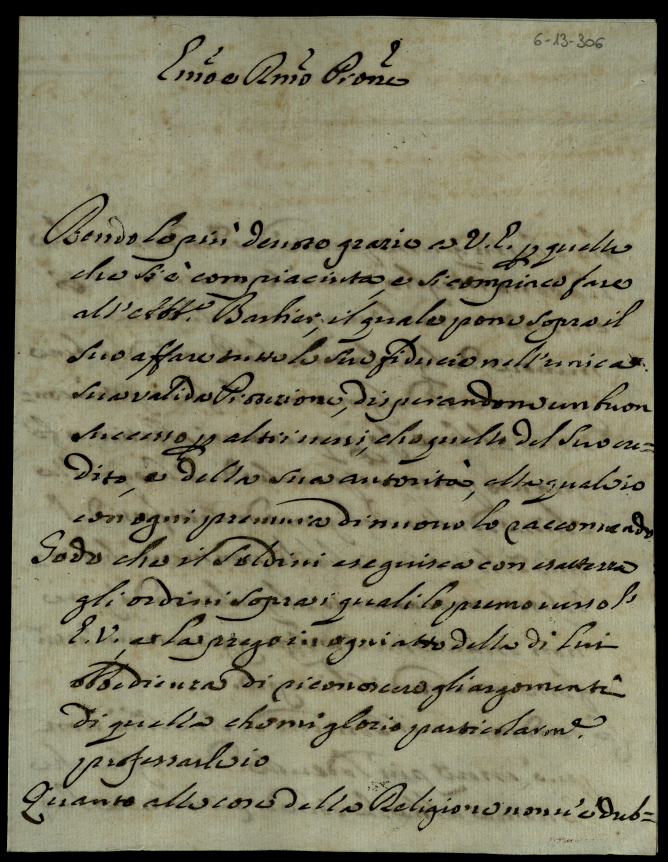 6-13-306
Emo e Rmo Prone
Rendo le più devote grazie a V.E. p quelle
che si è compiaciuta, e si compiace fare
all'Abb.e Barbier, il quale pone sopra il
suo affare tutta la sua fiducia nell'unica
sua valida Protezione, disperandone un buon
successo p altri mezzi, che quelli del suo cre=
dito, e della sua autorità, alla quale io
con ogni premura di nuovo lo raccomando
Godo che il Soldini eseguisca con esattezza
gli ordini sopra i quali le premo verso l'
E.V., e la prego in ogni atto della di lui
obbedienza di riconoscere gli argomenti
di quella che mi glorio particolarm.e
professarle io
Quanto alle cose della Religione non v'è dub=